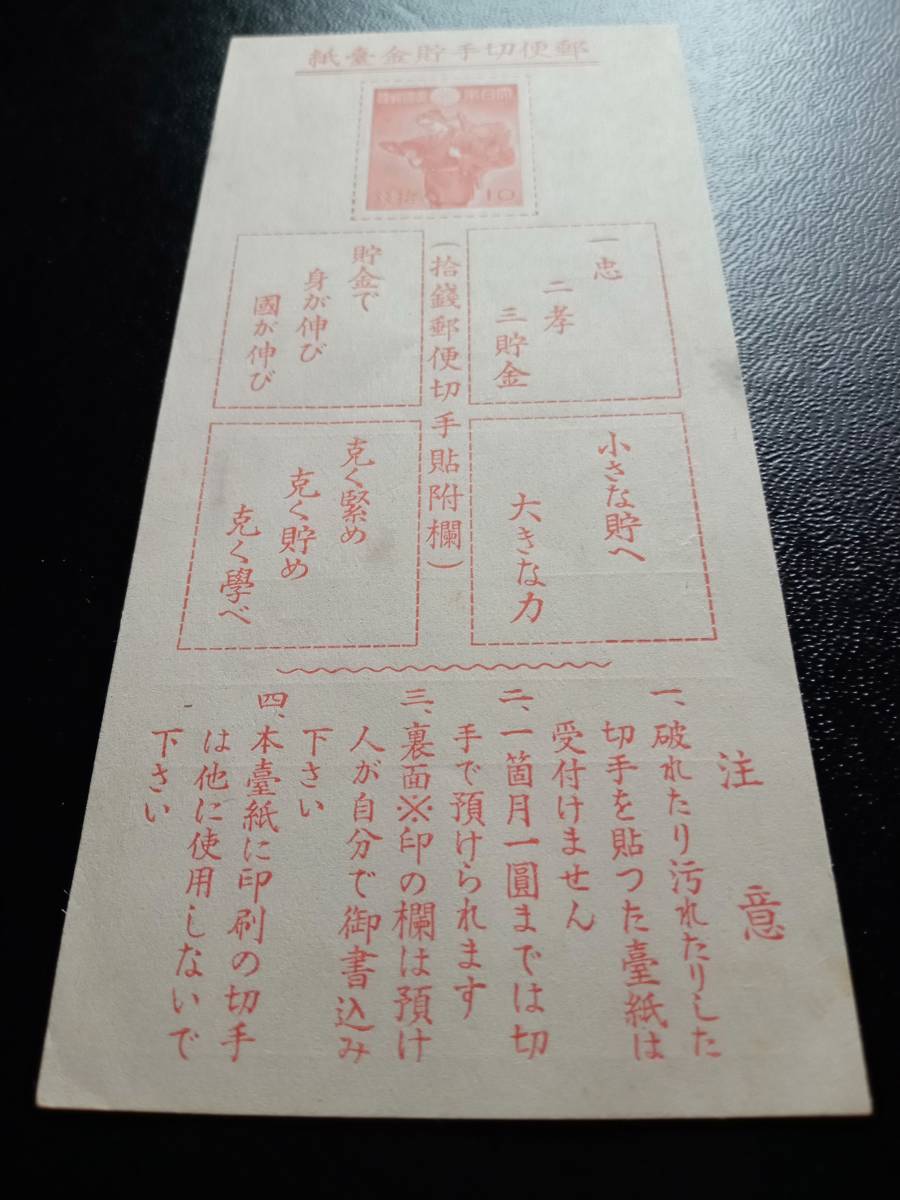 郵便切手貯金臺紙
10
一忠
二孝
三貯金
(拾錢郵便切手貼附欄)
貯金で
身が伸び
國が伸び
小さな貯へ
大きな力
克く緊め
克く貯め
克く學べ
注意
一、破れたり汚れたりした
切手を貼つた臺紙は
受付けません
二、一箇月一圓までは切
手で預けられます
三、裏面※印の欄は預け
人が自分で御書込み
下さい
四、本臺紙に印刷の切手
は他に使用しないで
下さい